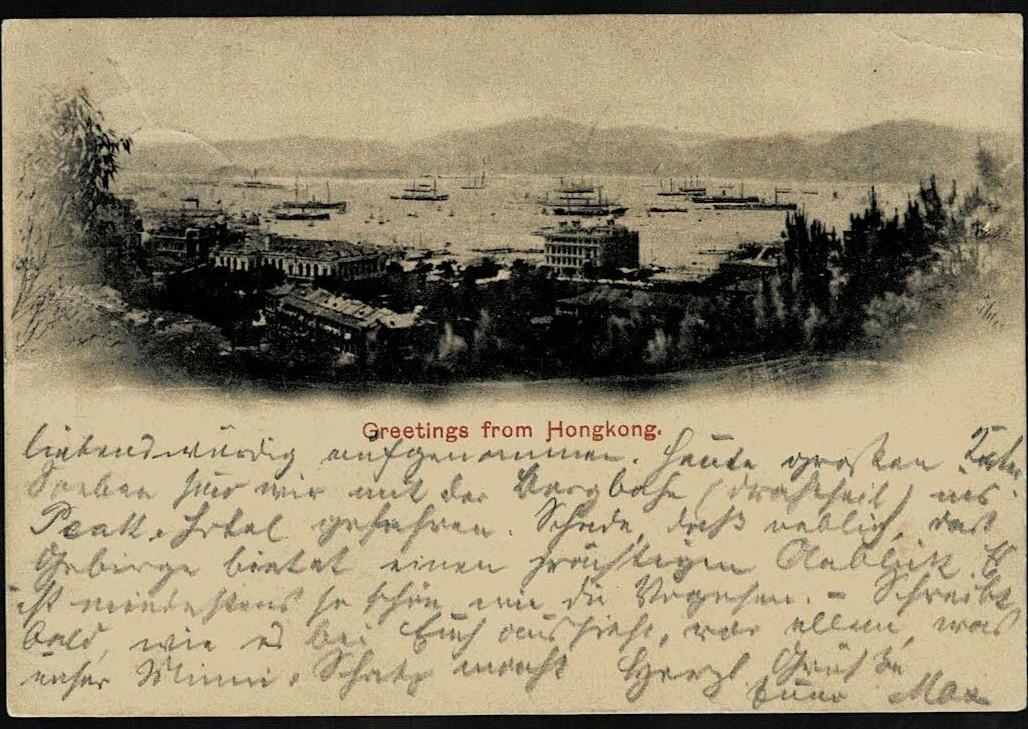 Greetings from Hongkong.
liebenswürdig aufgenommen. Heute großen
Soeben sind wir mit der Bergbahn (Drahtseil) ins
Peak-Hotel gefahren. Schade, daß neblig, das
Gebirge bietet einen prächtigen Anblick. Es
ist mindestens so schön wie die Vogesen. – Schreibt
bald, wie es bei Euch aussieht, vor allem, was
unser Minni-Schatz macht Herzl. Grüße
Euer Max